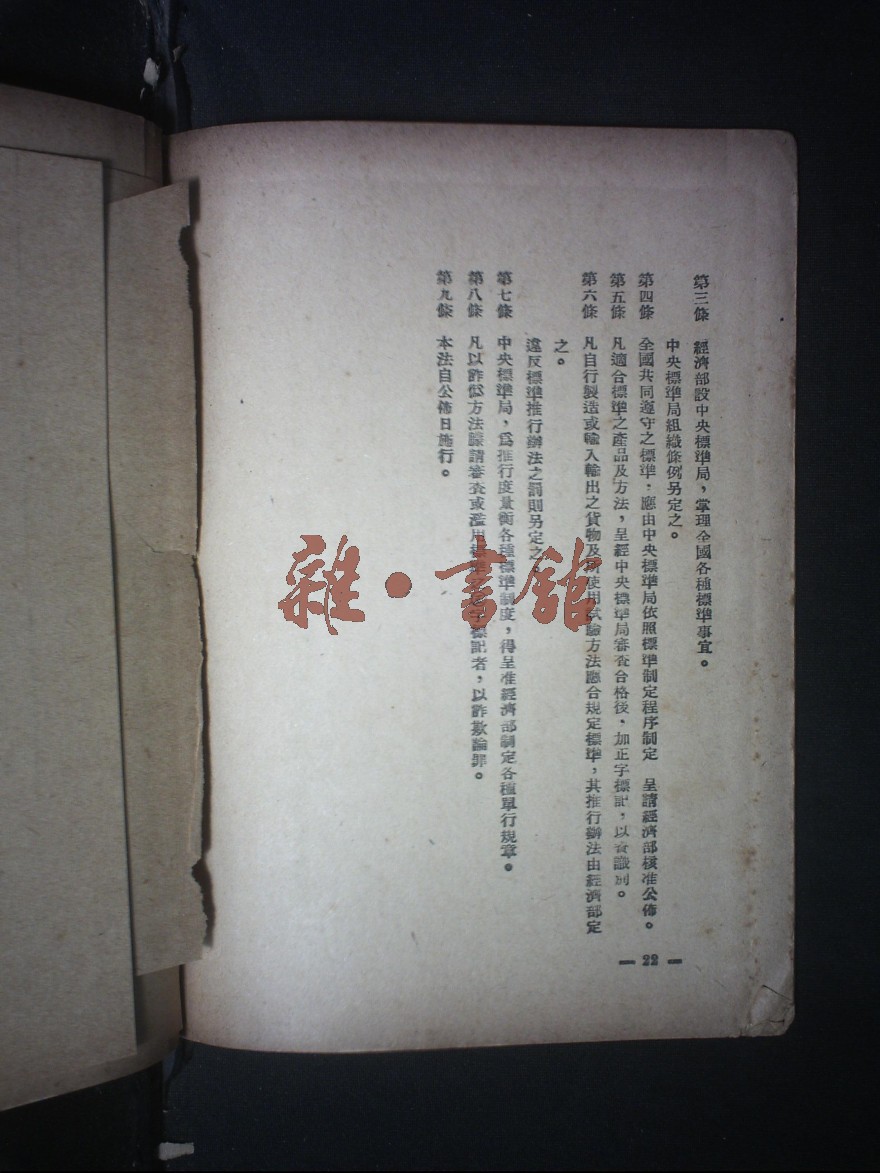 第三條　經濟部設中央標準局，掌理全國各種標準事宜。
中央標準局組織條例另定之。
第四條　全國共同遵守之標準，應由中央標準局依照標準制定程序制定　呈請經濟部核准公佈。
第五條　凡適合標準之產品及方法，呈經中央標準局審查合格後，加正字標記，以資識別。
第六條　凡自行製造或輸入輸出之貨物及所使用試驗方法應合規定標準，其推行辦法由經濟部定
之。
違反標準推行辦法之罰則另定之。
第七條　中央標準局，爲推行度量衡各種標準制度，得呈准經濟部制定各種單行規章。
第八條　凡以詐僞方法朦請審查或濫用標準字標記者，以詐欺論罪。
第九條　本法自公佈日施行。
— 22 —
雜·書館